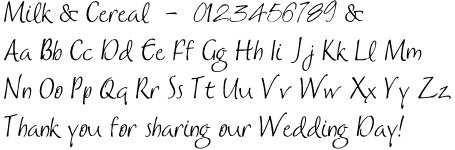 Milk & Cereal - 0123456789 &
Aa Bb Cc Dd Ee Ff Gg Hh Ii Jj Kk Ll Mm
Nn Oo Pp Qq Rr Ss Tt Uu Vv Ww Xx Yy Zz
Thank you for sharing our Wedding Day!